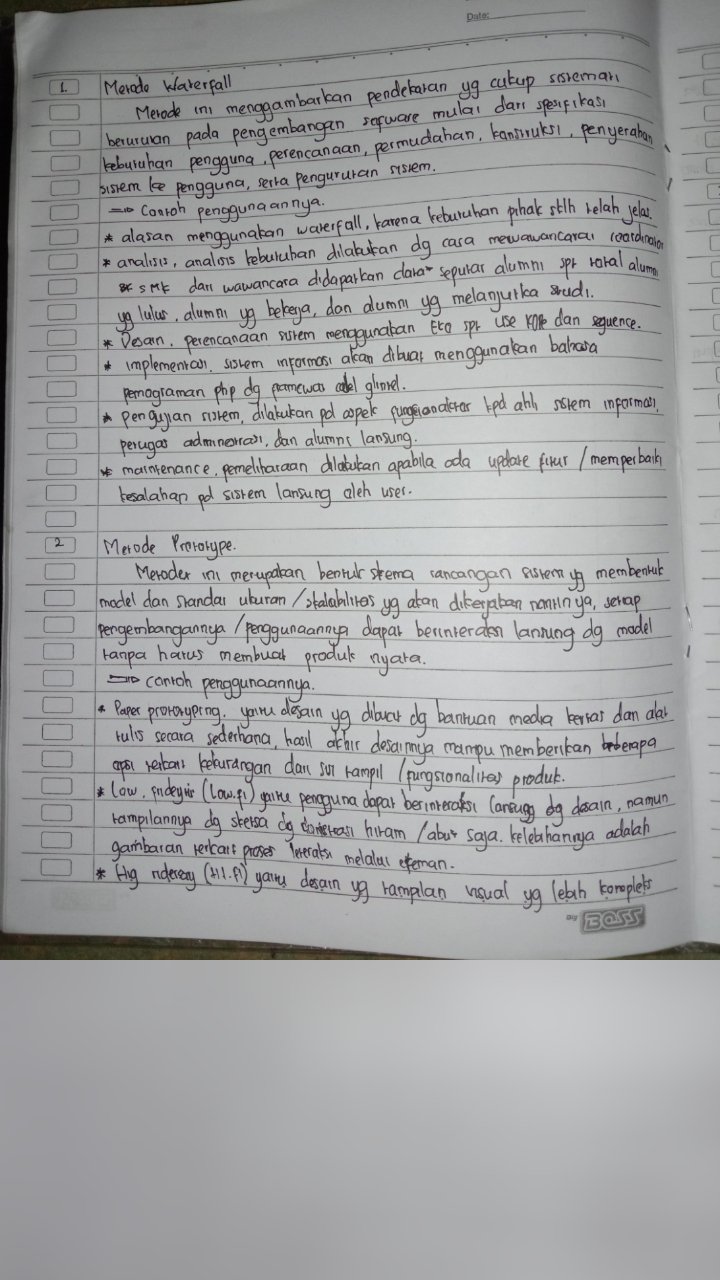 Date:
1. Metode Waterfall
Metode ini menggambarkan pendekatan yg cukup sistemati
berurutan pada pengembangan software mulai dari spesifikasi
kebutuhan pengguna, perencanaan, permudahan, konstruksi, penyerahan
sistem ke pengguna, serta pengurutan sistem.
=> Contoh penggunaannya.
* alasan menggunakan waterfall, karena kebutuhan pihak stlh telah jelas.
* analisis, analisis kebutuhan dilakukan dg cara mewawancarai coordinator
SMK dari wawancara didapatkan data² seputar alumni spt total alumni
yg lulus, alumni yg bekerja, dan alumni yg melanjutka studi.
* Desain, perencanaan sistem menggunakan spt use dan sequence.
* implementasi, sistem informasi akan dibuat menggunakan bahasa
pemograman php dg
* pengujian sistem, dilakukan pd aspek kpd ahli sistem informasi,
petugas administrasi, dan alumni lansung.
* maintenance, pemeliharaan dilakukan apabila ada update fitur / memperbaiki
kesalahan pd sistem lansung oleh user.
2 Metode Prototype.
Metode ini merupakan bentuk skema rancangan sistem yg membentuk
model dan standar ukuran / skalabilitas yg akan dikerjakan nantinya, setiap
pengembangannya / penggunaannya dapat berinteraksi lansung dg model
tanpa harus membuat produk nyata.
=> contoh penggunaannya.
* Paper prototyping, yaitu desain yg dibuat dg bantuan media kertas dan alat
tulis secara sederhana, hasil akhir desainnya mampu memberikan beberapa
opsi terkait kekurangan dari sisi tampil / fungsionalitas produk.
* Low, (Low.fi) yaitu pengguna dapat berinteraksi lansung dg desain, namun
tampilannya dg sketsa dg hitam / abu² saja. kelebihannya adalah
gambaran terkait proses melalui
* (Hi.fi) yaitu desain yg tampilan visual yg lebih kompleks
Big BOSS